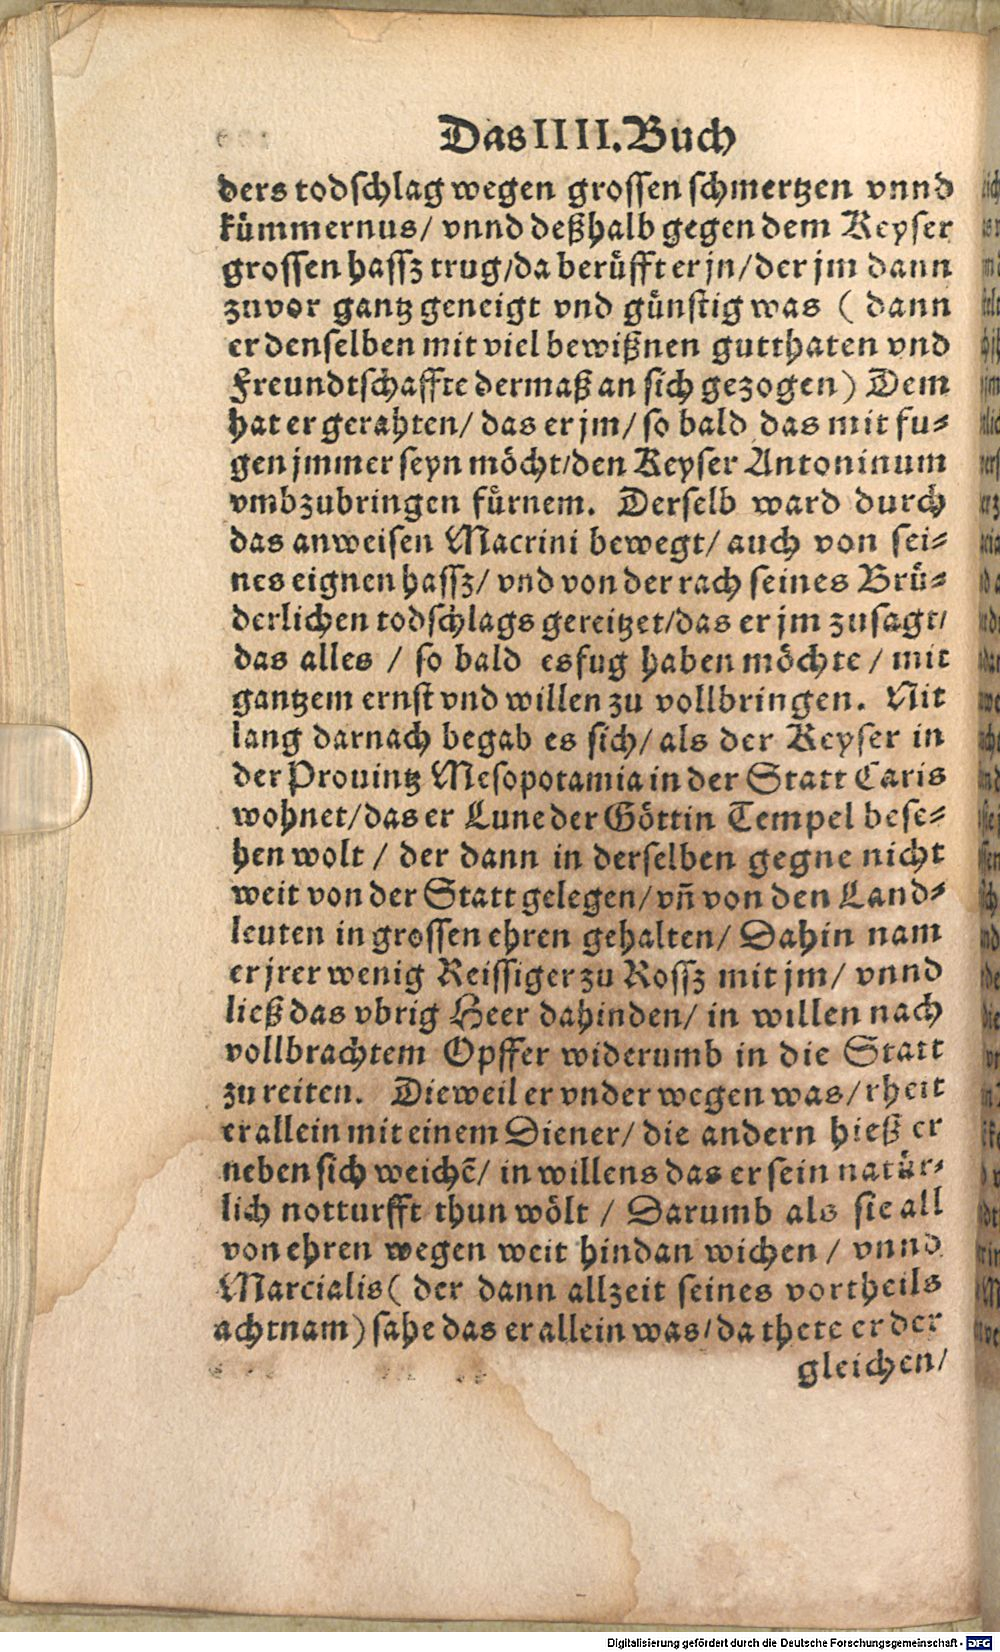 Das IIII. Buch
ders todschlag wegen grossen schmertzen vnnd
kümmernus/ vnnd deßhalb gegen dem Keyser
grossen hassz trug/da berüfft er jn/der jm dann
zuvor gantz geneigt vnd günstig was ( dann
er denselben mit viel bewißnen gutthaten vnd
Freundtschaffte dermaß an sich gezogen) Dem
hat er gerahten/ das er jm/ so bald das mit fu⸗
gen jmmer seyn möcht/den Keyser Antoninum
vmbzubringen fürnem. Derselb ward durch
das anweisen Macrini bewegt/ auch von sei⸗
nes eignen hassz/ vnd von der rach seines Brü⸗
derlichen todschlags gereitzet/das er jm zusagt/
das alles / so bald es fug haben möchte / mit
gantzem ernst vnd willen zu vollbringen. Nit
lang darnach begab es sich/ als der Keyser in
der Prouintz Mesopotamia in der Statt Caris
wohnet/das er Lune der Göttin Tempel bese⸗
hen wolt / der dann in derselben gegne nicht
weit von der Statt gelegen/ vñ von den Land⸗
leuten in grossen ehren gehalten/ Dahin nam
er jrer wenig Reissiger zu Rossz mit jm/ vnnd
ließ das vbrig Heer dahinden/ in willen nach
vollbrachtem Opffer widerumb in die Statt
zu reiten. Dieweil er vnder wegen was/ rheit
er allein mit einem Diener/ die andern hieß er
neben sich weichē/ in willens das er sein natür⸗
lich notturfft thun wölt / Darumb als sie all
von ehren wegen weit hindan wichen / vnnd
Marcialis( der dann allzeit seines vortheils
achtnam) sahe das er allein was/ da thete er der
gleichen/
Digitalisierung gefördert durch die Deutsche Forschungsgemeinschaft - DFG